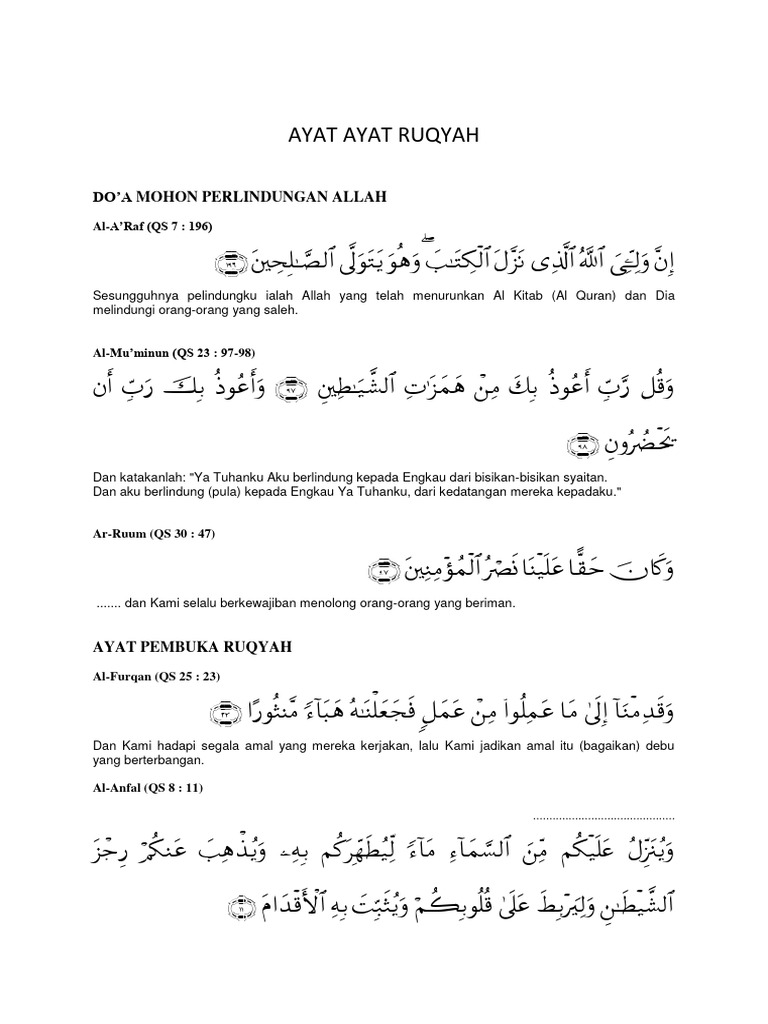 AYAT AYAT RUQYAH
DO’A MOHON PERLINDUNGAN ALLAH
Al-A’Raf (QS 7 : 196)
إِنَّ وَلِـِّۧيَ ٱللَّهُ ٱلَّذِى نَزَّلَ ٱلْكِتَـٰبَ ۖ وَهُوَ يَتَوَلَّى ٱلصَّـٰلِحِينَ ﴿١٩٦﴾
Sesungguhnya pelindungku ialah Allah yang telah menurunkan Al Kitab (Al Quran) dan Dia
melindungi orang-orang yang saleh.
Al-Mu’minun (QS 23 : 97-98)
وَقُل رَّبِّ أَعُوذُ بِكَ مِنْ هَمَزَٰتِ ٱلشَّيَـٰطِينِ ﴿٩٧﴾ وَأَعُوذُ بِكَ رَبِّ أَن
يَحْضُرُونِ ﴿٩٨﴾
Dan katakanlah: "Ya Tuhanku Aku berlindung kepada Engkau dari bisikan-bisikan syaitan.
Dan aku berlindung (pula) kepada Engkau Ya Tuhanku, dari kedatangan mereka kepadaku."
Ar-Ruum (QS 30 : 47)
وَكَانَ حَقًّا عَلَيْنَا نَصْرُ ٱلْمُؤْمِنِينَ ﴿٤٧﴾
....... dan Kami selalu berkewajiban menolong orang-orang yang beriman.
AYAT PEMBUKA RUQYAH
Al-Furqan (QS 25 : 23)
وَقَدِمْنَآ إِلَىٰ مَا عَمِلُوا۟ مِنْ عَمَلٍ فَجَعَلْنَـٰهُ هَبَآءً مَّنثُورًا ﴿٢٣﴾
Dan Kami hadapi segala amal yang mereka kerjakan, lalu Kami jadikan amal itu (bagaikan) debu
yang berterbangan.
Al-Anfal (QS 8 : 11)
...........................................
وَيُنَزِّلُ عَلَيْكُم مِّنَ ٱلسَّمَآءِ مَآءً لِّيُطَهِّرَكُم بِهِۦ وَيُذْهِبَ عَنكُمْ رِجْزَ
ٱلشَّيْطَـٰنِ وَلِيَرْبِطَ عَلَىٰ قُلُوبِكُمْ وَيُثَبِّتَ بِهِ ٱلْأَقْدَامَ ﴿١١﴾